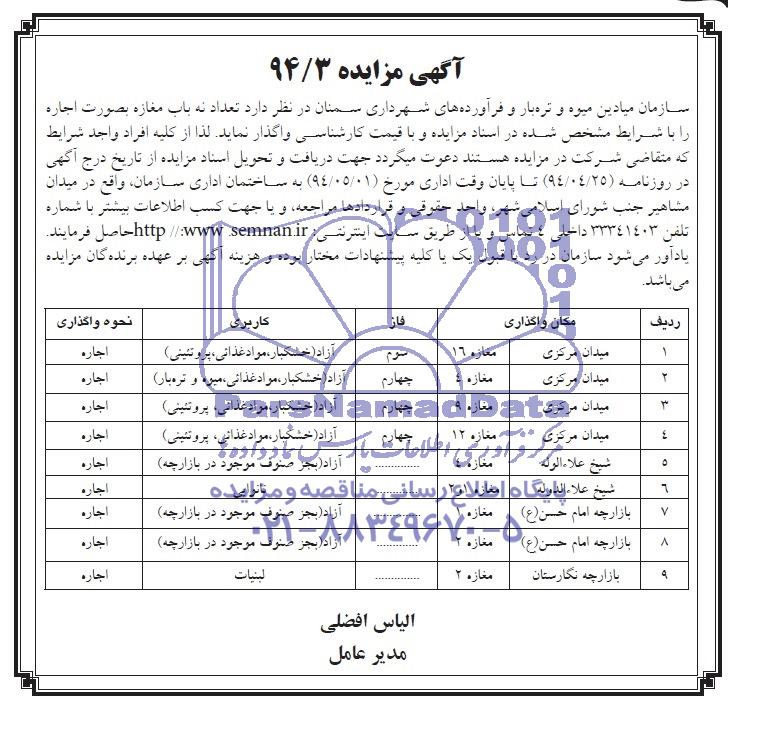 آگهی مزایده ۹۴/۳
سازمان میادین میوه و تره‌بار و فرآورده‌های شهرداری سمنان در نظر دارد تعداد نه باب مغازه بصورت اجاره
را با شرایط مشخص شده در اسناد مزایده و با قیمت کارشناسی واگذار نماید. لذا از کلیه افراد واجد شرایط
که متقاضی شرکت در مزایده هستند دعوت میگردد جهت دریافت و تحویل اسناد مزایده از تاریخ درج آگهی
در روزنامه (۹۴/۰۴/۲۵) تا پایان وقت اداری مورخ (۹۴/۰۵/۰۱) به ساختمان اداری سازمان، واقع در میدان
مشاهیر جنب شورای اسلامی‌شهر، واحد حقوقی و قراردادها مراجعه، و یا جهت کسب اطلاعات بیشتر با شماره
تلفن ۳۳۳۴۱۴۰۳ داخلی ٤ تماس و یا از طریق سایت اینترنتی: http //:www semnan.irحاصل فرمایند.
یادآور می‌شود سازمان در رد یا قبول یک یا کلیه پیشنهادات مختار بوده و هزینه آگهی بر عهده برنده‌گان مزایده
می‌باشد.
ردیف مکان واگذاری فاز کاربری نحوه واگذاری
۱ میدان مرکزی مغازه ۱۶ سوم آزاد(خشکبار،موادغذائی،پروتئینی) اجاره
۲ میدان مرکزی مغازه ٤ چهارم آزاد(خشکبار،موادغذائی،میوه و تره‌بار) اجاره
۳ میدان مرکزی مغازه ۹ چهارم آزاد(خشکبار،موادغذائی، پروتئینی) اجاره
٤ میدان مرکزی مغازه ۱۲ چهارم آزاد(خشکبار،موادغذائی، پروتئینی) اجاره
۵ شیخ علاءالوله مغازه ٤ ............. آزاد(بجز صنوف موجود در بازارچه) اجاره
۶ شیخ علاءالدوله مغازه ۱و۲ ............. نانوایی اجاره
۷ بازارچه امام حسن(ع) مغازه ۱ ............. آزاد(بجز صنوف موجود در بازارچه) اجاره
۸ بازارچه امام حسن(ع) مغازه ۲ ............. آزاد(بجز صنوف موجود در بازارچه) اجاره
۹ بازارچه نگارستان مغازه ۲ ............. لبنیات اجاره
الیاس افضلی
مدیر عامل
ParsNamadData
مرکز فرآوری اطلاعات پارس نماد داده ها
پایگاه اطلاع رسانی مناقصه و مزایده
۰۲۱-۸۸۳۴۹۶۷۰-۵